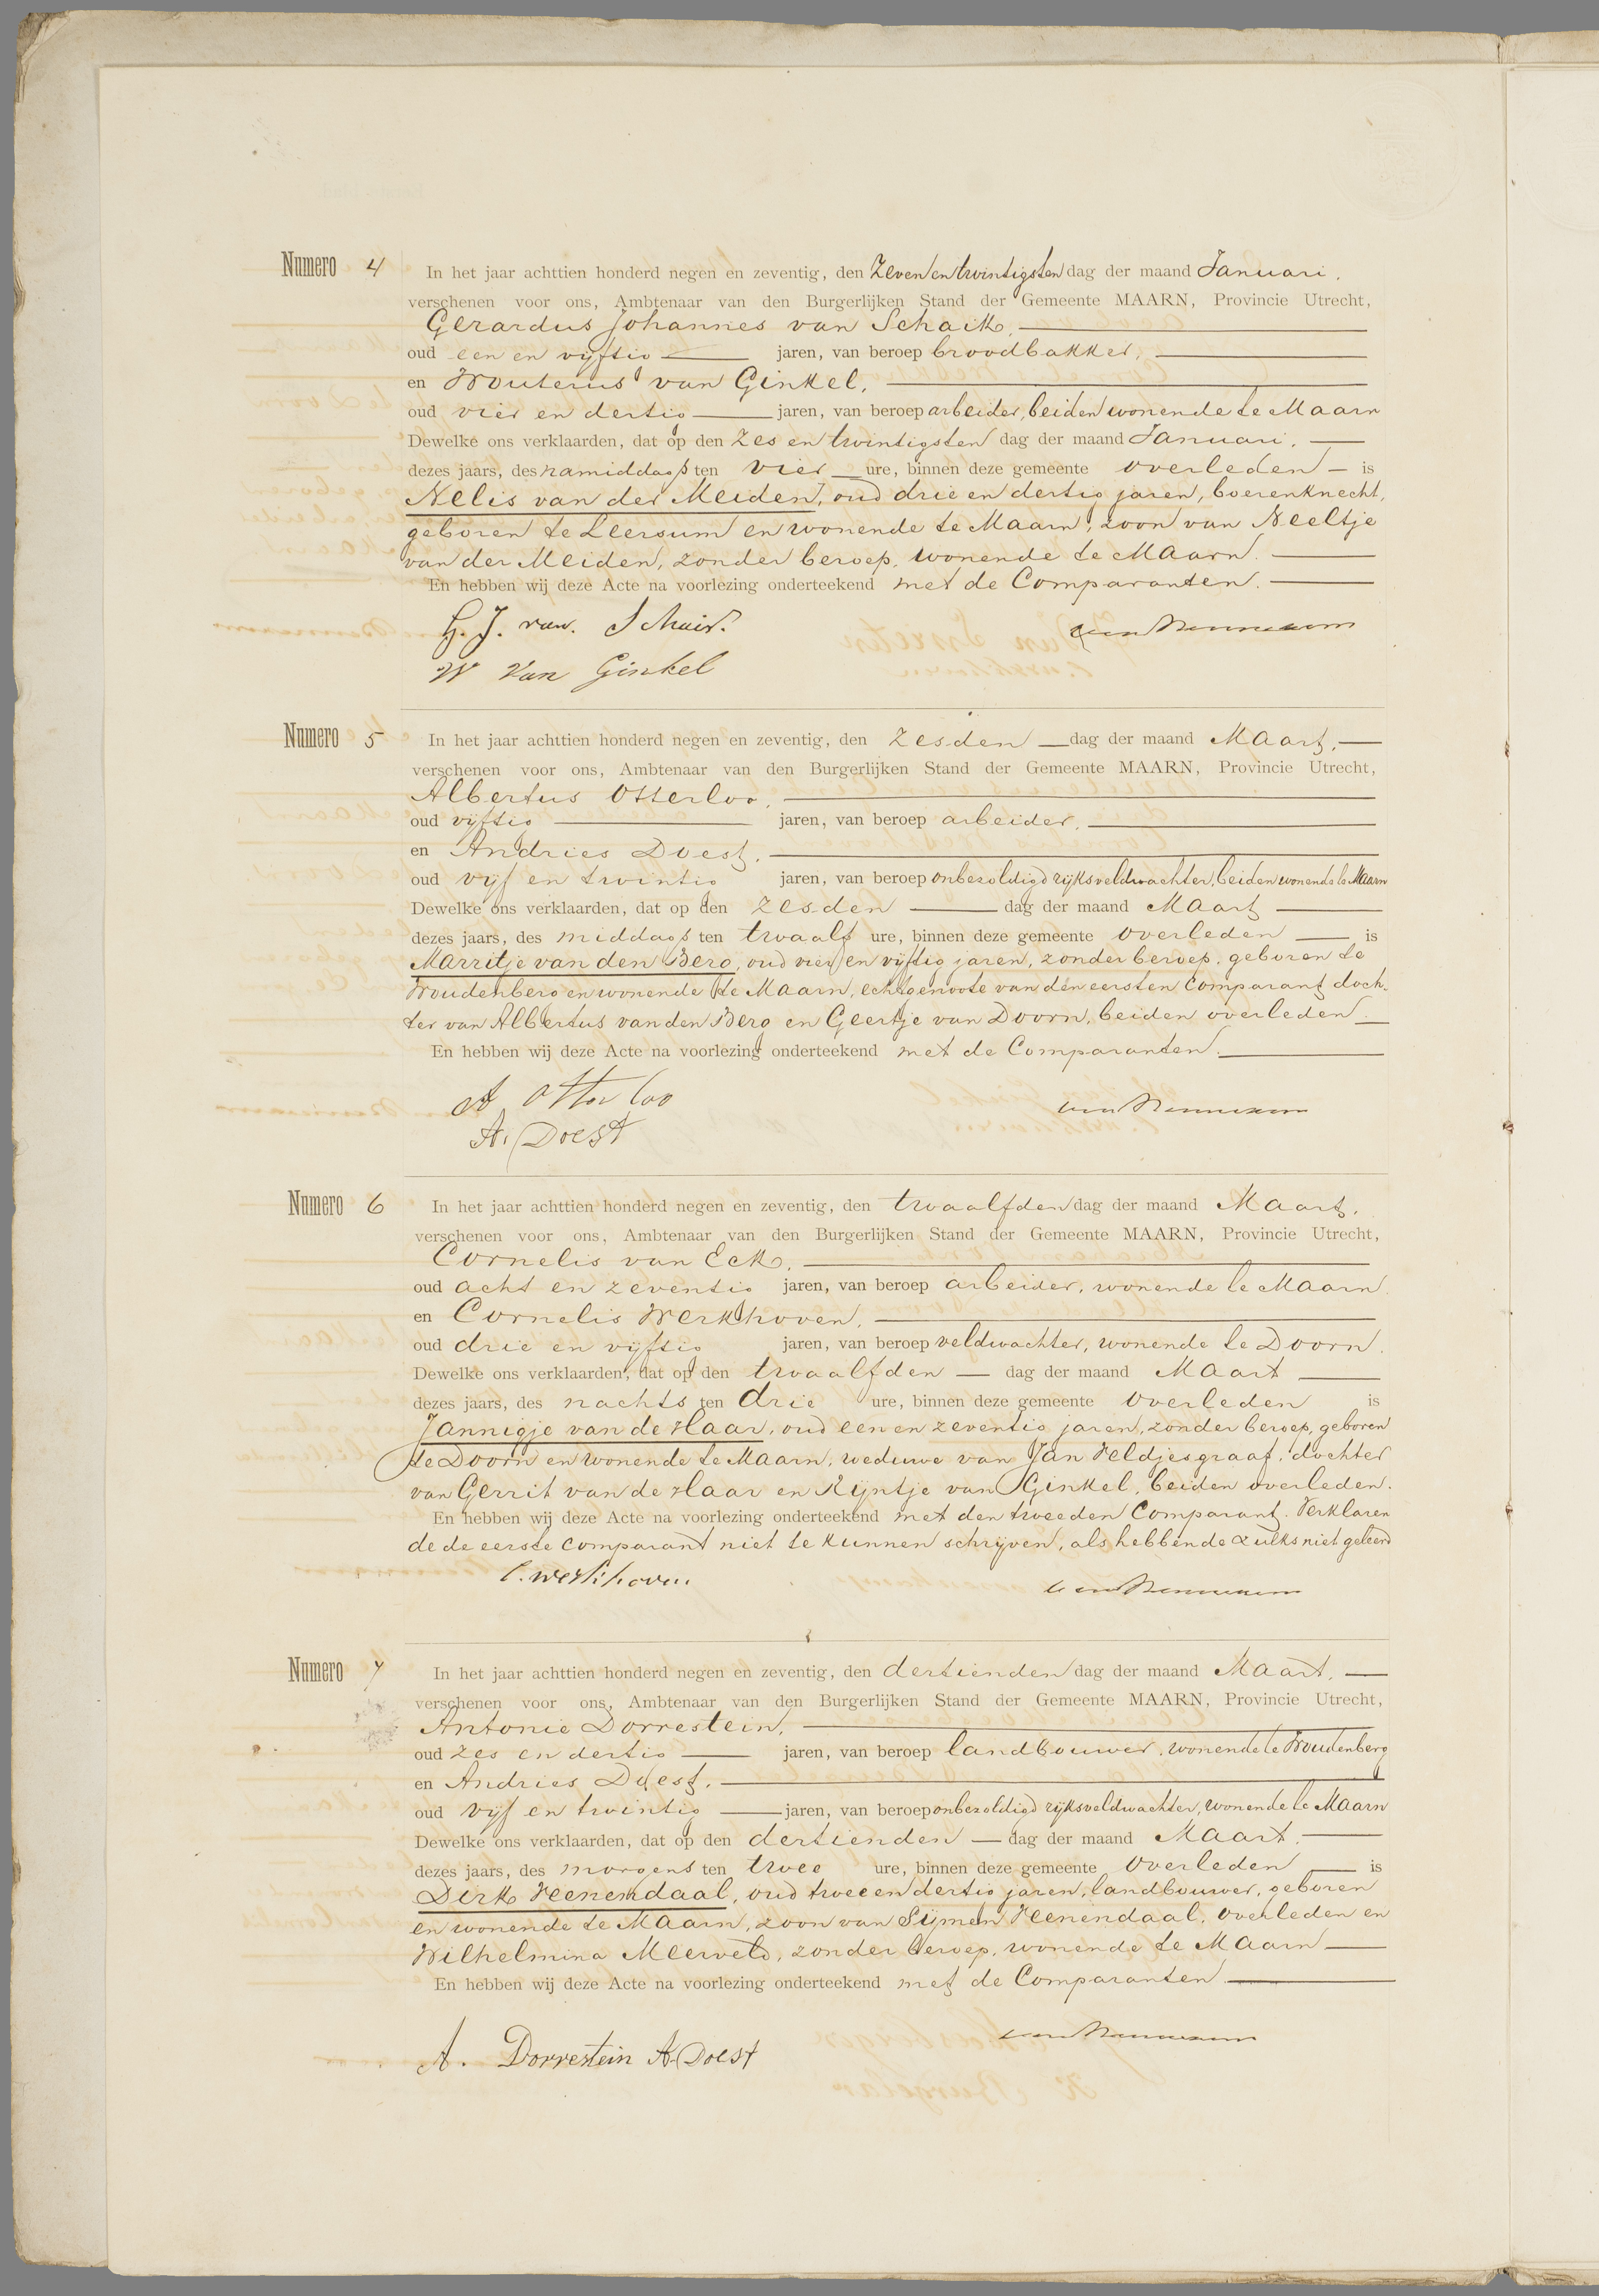 Numero 4 In het jaar achttien honderd negen en zeventig, den Zeven en twintigsten dag der maand Januari.
verschenen voor ons, Ambtenaar van den Burgerlijken Stand der Gemeente MAARN, Provincie Utrecht,
Gerardus Johannes van Schaik,
oud een en vijftig jaren, van beroep broodbakker,
en Wouterus van Ginkel,
oud vier en dertig jaren, van beroep arbeider, beiden wonende te Maarn
Dewelke ons verklaarden, dat op den Zes en twintigsten dag der maand Januari,
dezes jaars, des namiddags ten vier ure, binnen deze gemeente overleden is
Nelis van der Meiden, oud drie en dertig jaren, boerenknecht,
geboren te Leersum en wonende te Maarn, zoon van Neeltje
van der Meiden, zonder beroep, wonende te Maarn.
En hebben wij deze Acte na voorlezing onderteekend met de Comparanten.
G. J. van. Schaik.
W van Ginkel
Numero 5 In het jaar achttien honderd negen en zeventig, den zesden dag der maand Maart,
verschenen voor ons, Ambtenaar van den Burgerlijken Stand der Gemeente MAARN, Provincie Utrecht,
Albertus Otterloo,
oud vijftig jaren, van beroep arbeider,
en Andries Doest,
oud vijf en twintig jaren, van beroep onbezoldigd rijksveldwachter, beiden wonende te Maarn
Dewelke ons verklaarden, dat op den zesden dag der maand Maart
dezes jaars, des middags ten twaalf ure, binnen deze gemeente overleden is
Marritje van den Berg, oud vier en vijftig jaren, zonder beroep, geboren te
Woudenberg en wonende te Maarn, echtgenoote van den eersten Comparant doch-
ter van Albertus van den Berg en Geertje van Doorn, beiden overleden
En hebben wij deze Acte na voorlezing onderteekend met de Comparanten.
A Otterloo
A. Doest
Numero 6 In het jaar achttien honderd negen en zeventig, den twaalfden dag der maand Maart,
verschenen voor ons, Ambtenaar van den Burgerlijken Stand der Gemeente MAARN, Provincie Utrecht,
Cornelis van Eck,
oud acht en zeventig jaren, van beroep arbeider, wonende te Maarn
en Cornelis Werkhoven,
oud drie en vijftig jaren, van beroep veldwachter, wonende te Doorn.
Dewelke ons verklaarden, dat op den twaalfden dag der maand Maart
dezes jaars, des nachts ten drie ure, binnen deze gemeente overleden is
Jannigje van de Haar, oud een en zeventig jaren, zonder beroep, geboren
te Doorn en wonende te Maarn, weduwe van Jan Veldjesgraaf, dochter
van Gerrit van de Haar en Rijntje van Ginkel, beiden overleden.
En hebben wij deze Acte na voorlezing onderteekend met den tweeden Comparant. Verklaren
de de eerste Comparant niet te kunnen schrijven, als hebbende zulks niet geleerd
C. Werkhoven.
Numero 7 In het jaar achttien honderd negen en zeventig, den dertienden dag der maand Maart,
verschenen voor ons, Ambtenaar van den Burgerlijken Stand der Gemeente MAARN, Provincie Utrecht,
Antonie Dorrestein,
oud zes en dertig jaren, van beroep landbouwer, wonende te Woudenberg
en Andries Doest,
oud vijf en twintig jaren, van beroep onbezoldigd rijksveldwachter, wonende te Maarn
Dewelke ons verklaarden, dat op den dertienden dag der maand Maart,
dezes jaars, des morgens ten twee ure, binnen deze gemeente overleden is
Dirk Veenendaal, oud twee en dertig jaren, landbouwer, geboren
en wonende te Maarn, zoon van Sijmen Veenendaal, overleden en
Wilhelmina Meerveld, zonder beroep, wonende te Maarn
En hebben wij deze Acte na voorlezing onderteekend met de Comparanten
A. Dorrestein A. Doest